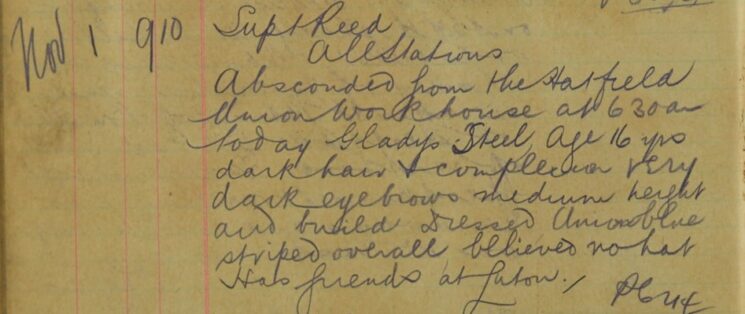 Nov 1 910 Supt Reed
All Stations
Absconded from the Hatfield
Union Workhouse at 6 30 am
today Gladys Steel, Age 16 yrs
dark hair & complexion very
dark eyebrows medium height
and build Dressed Union blue
striped overall believed no hat
Has friends at Luton. /